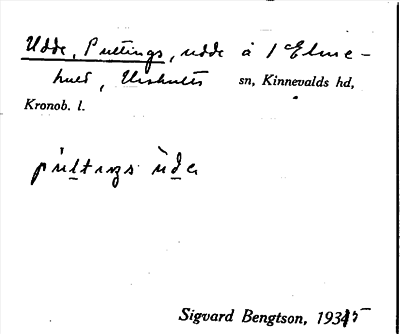 Udde, Pultings, udde å 1 Elme-
hult, Urshults sn, Kinnevalds hd,
Kronob. l.
pultings ùde
Sigvard Bengtson, 1935